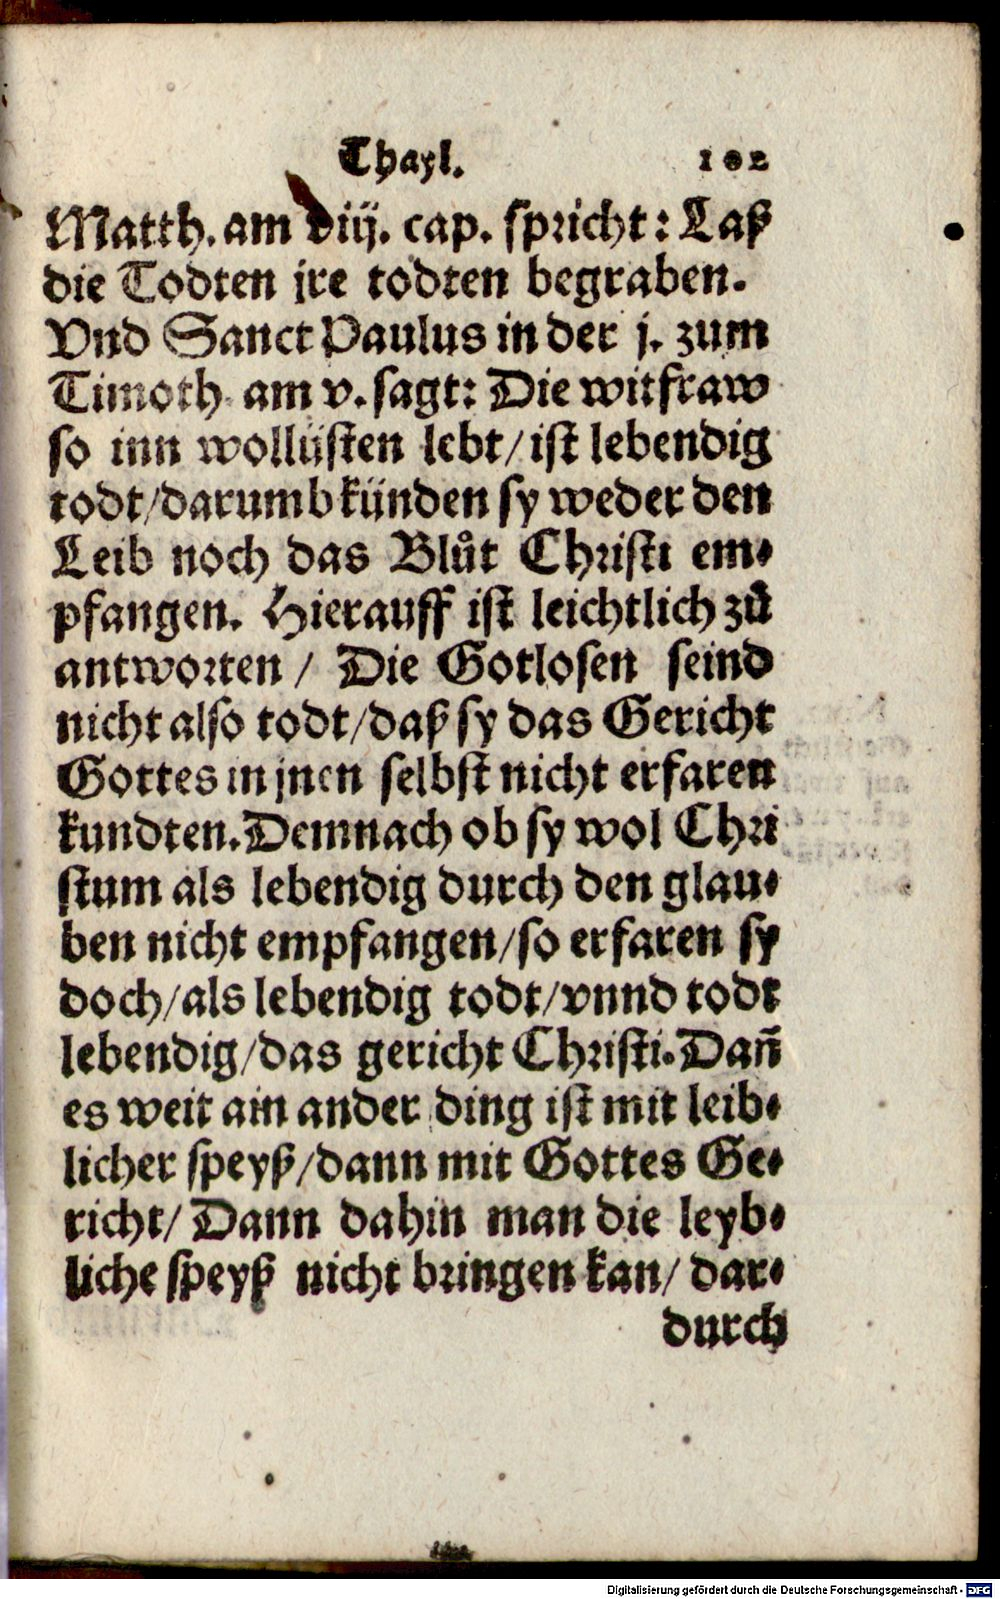 Thayl. 102
Matth. am viij. cap. spricht: Laß
die Todten jre todten begraben.
Vnd Sanct Paulus in der j. zum
Timoth. am v. sagt: Die witfraw
so inn wollüsten lebt/ ist lebendig
todt/ darumb künden sy weder den
Leib noch das Blůt Christi em-
pfangen. Hierauff ist leichtlich zů
antworten/ Die Gotlosen seind
nicht also todt/ daß sy das Gericht
Gottes in jnen selbst nicht erfaren
kundten. Demnach ob sy wol Chri
stum als lebendig durch den glau-
ben nicht empfangen/ so erfaren sy
doch/ als lebendig todt/ vnnd todt
lebendig/ das gericht Christi. Dañ
es weit ain ander ding ist mit leib-
licher speyß/ dann mit Gottes Ge-
richt/ Dann dahin man die leyb-
liche speyß nicht bringen kan/ dar-
durch
Digitalisierung gefördert durch die Deutsche Forschungsgemeinschaft - DFG